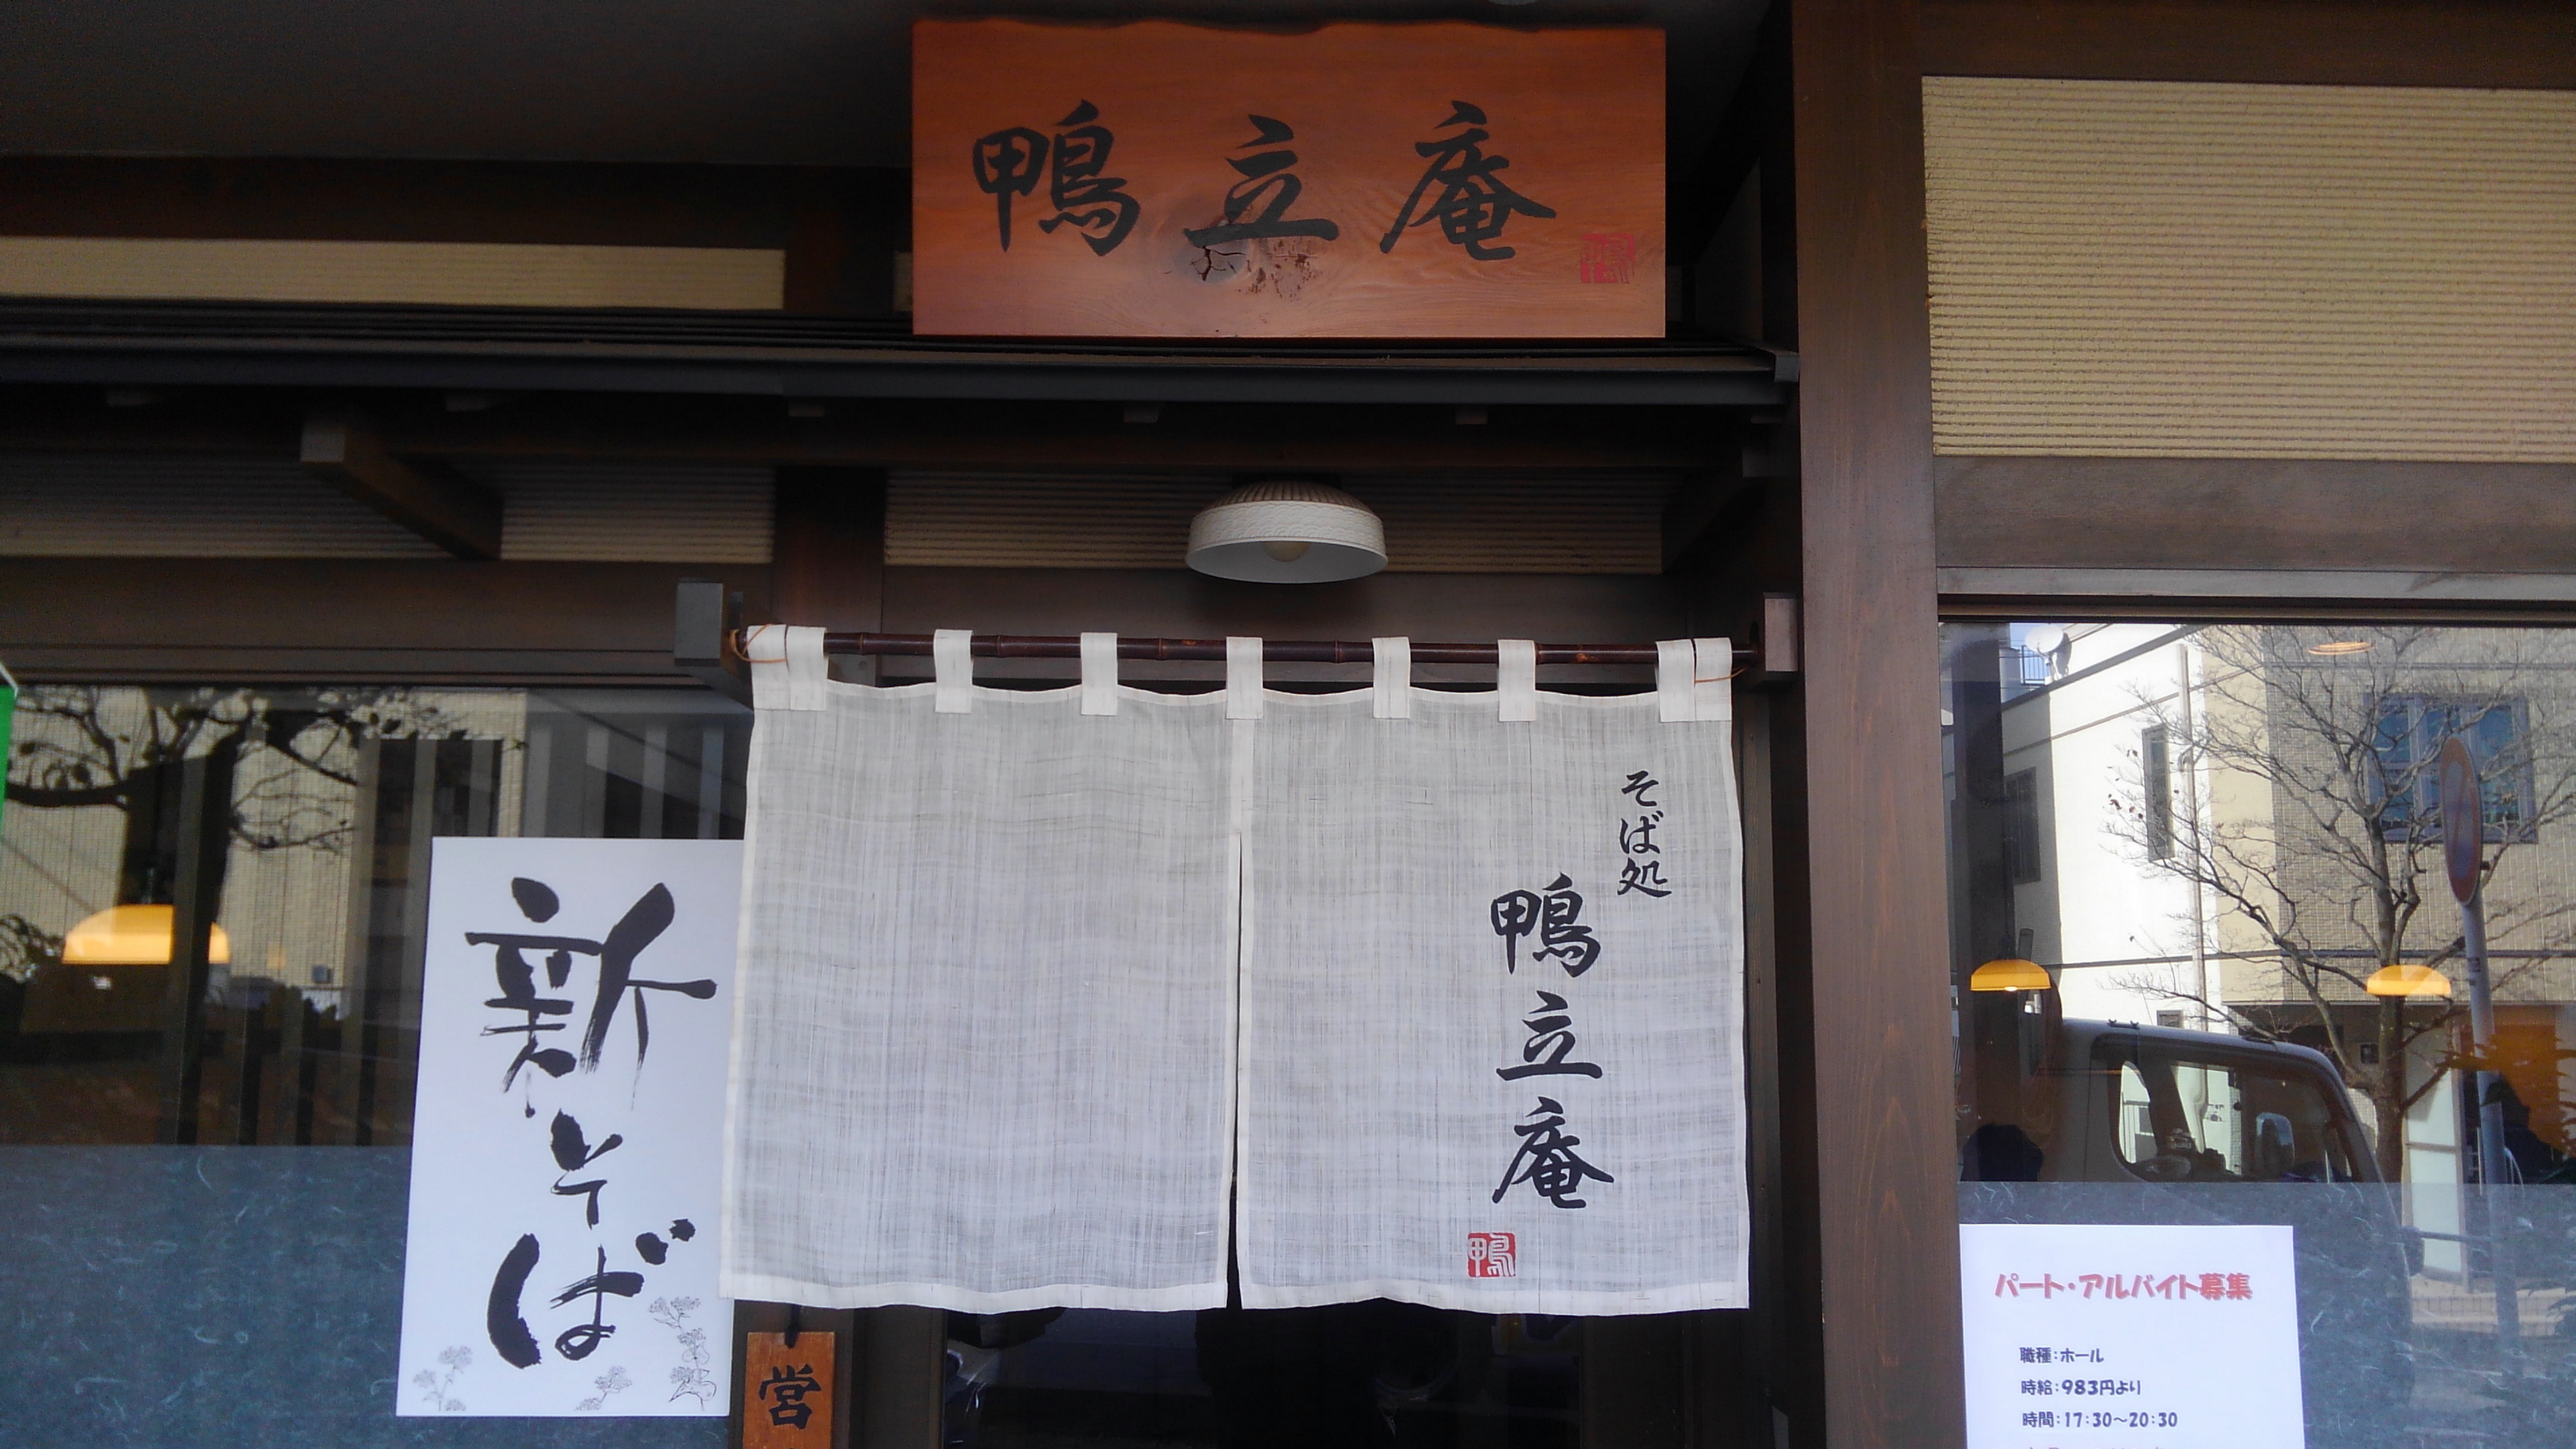 鴨立庵
そば処
鴨立庵
鴨
新そば
営
パート・アルバイト募集
職種：ホール
時給：983円より
時間：17：30～20：30